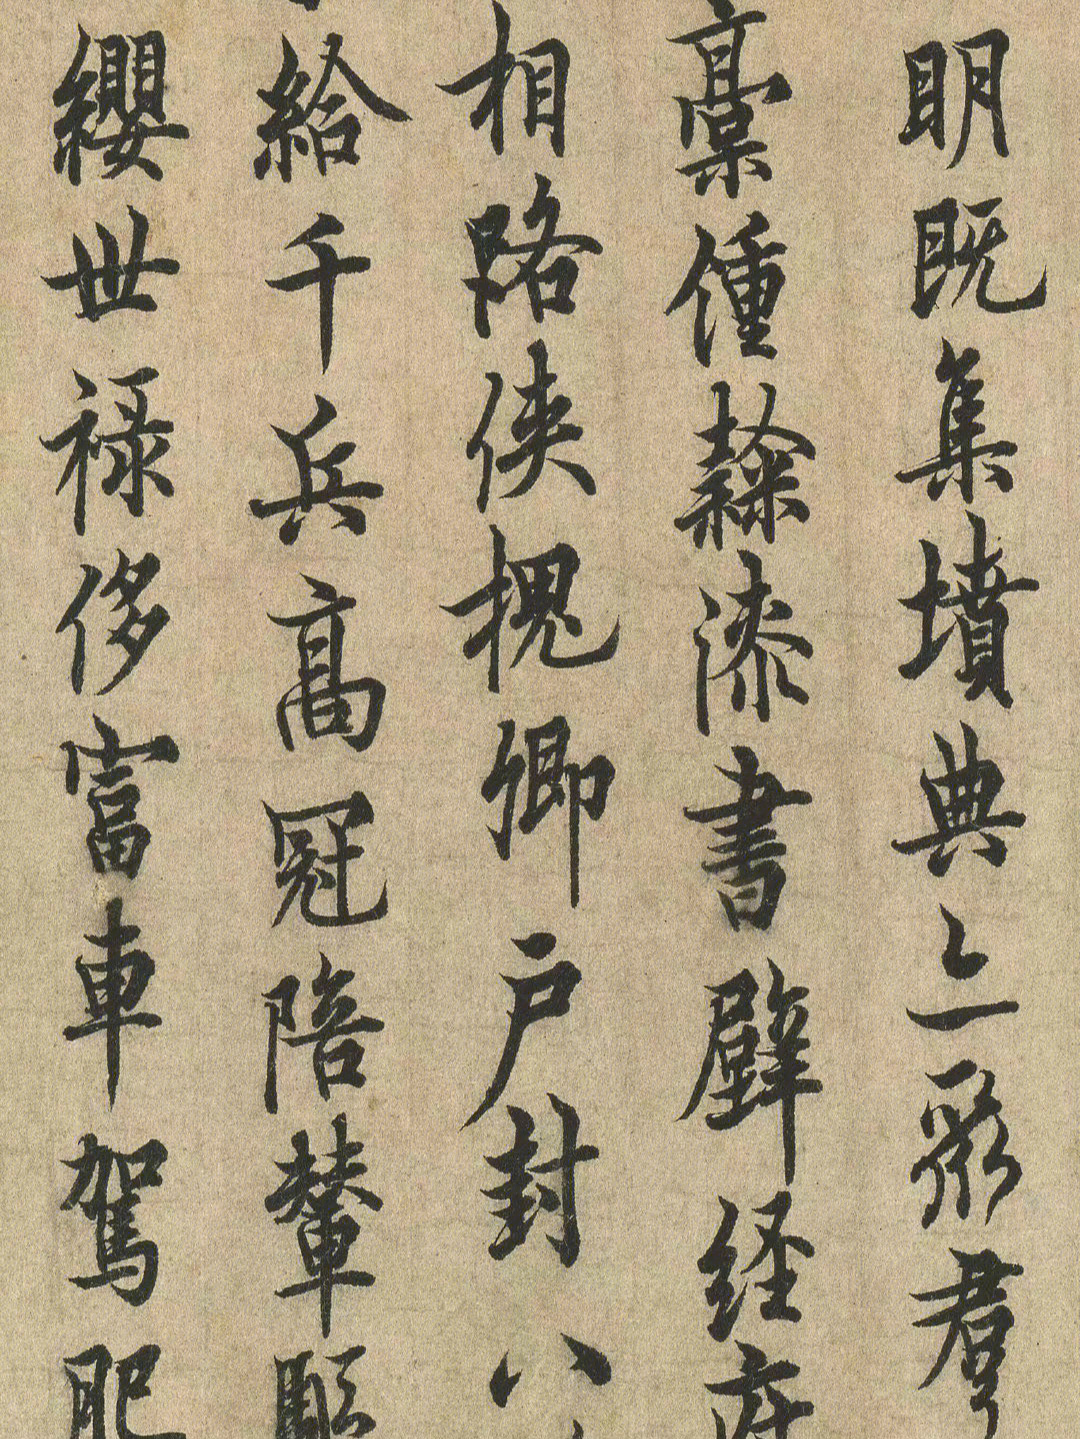 明既集墳典亦聚群
稾鍾隸漆書壁經府
相路俠槐卿户封八
給千兵高冠陪輦驅
纓世禄侈富車駕肥